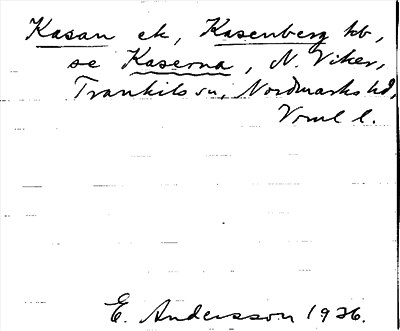 Kasan ek, Kasenberg hb,
se Kaserna, N. Viker,
Trankils sn, Nordmarks hd,
Vrml l.
E. Andersson 1926.